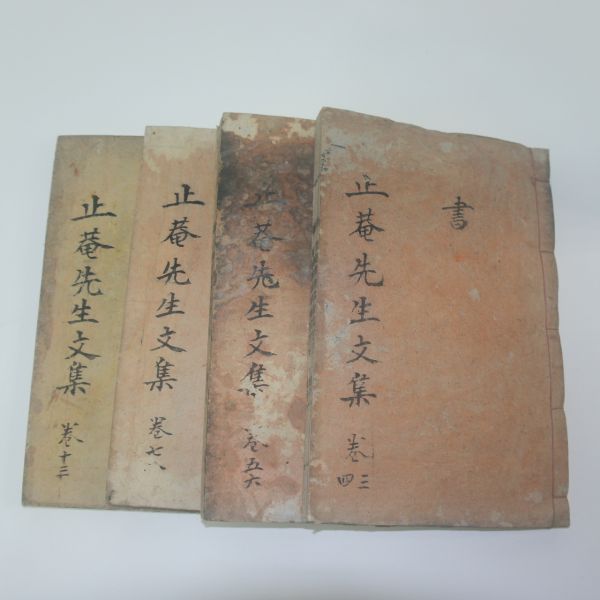 書
止菴先生文集 卷三四
止菴先生文集 卷五六
止菴先生文集 卷七八
止菴先生文集 卷十三